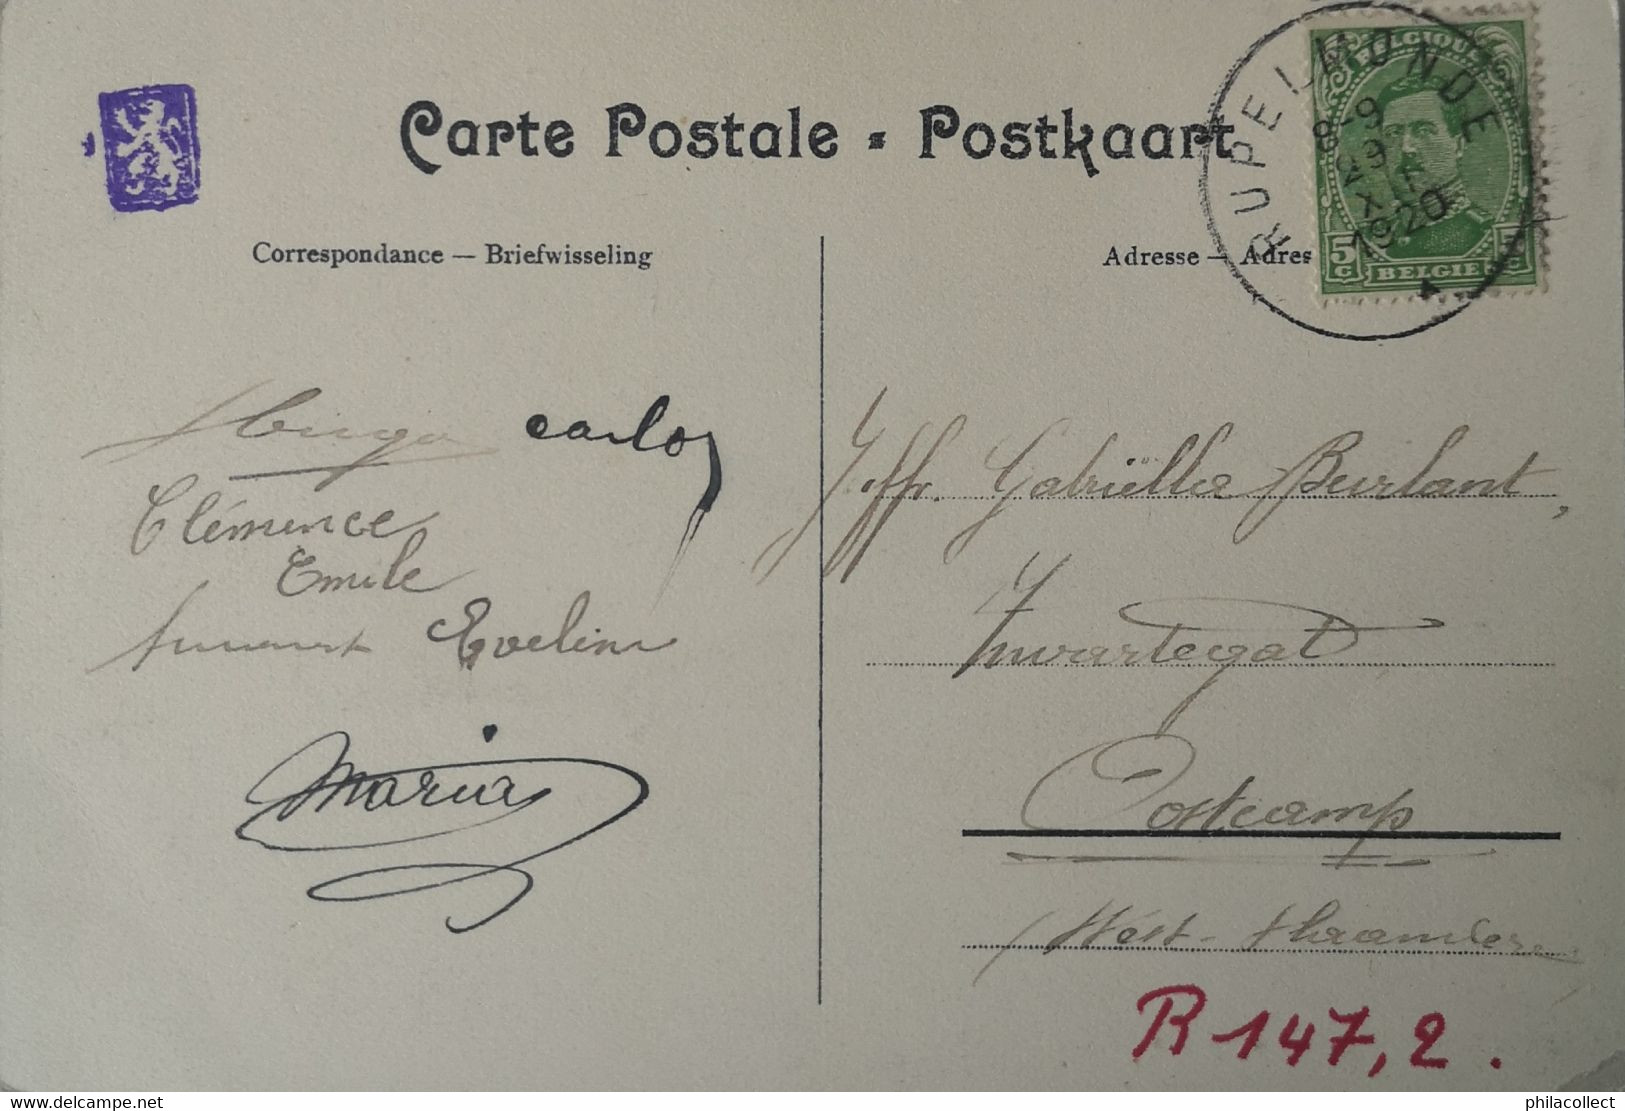 Carte Postale - Postkaart
RUPELMONDE
8-9
29
XII
1920
BELGIQUE
5
C
BELGIE
Correspondance — Briefwisseling
Adresse — Adres
Hugo carlo
Clémence
Emile
Eveline
Maria
Jffr. Gabriëlle Burlant,
Zwartegat
Oostcamp
West-Vlaanderen
R 147,2.
http://www.delcampe.net
philacollect